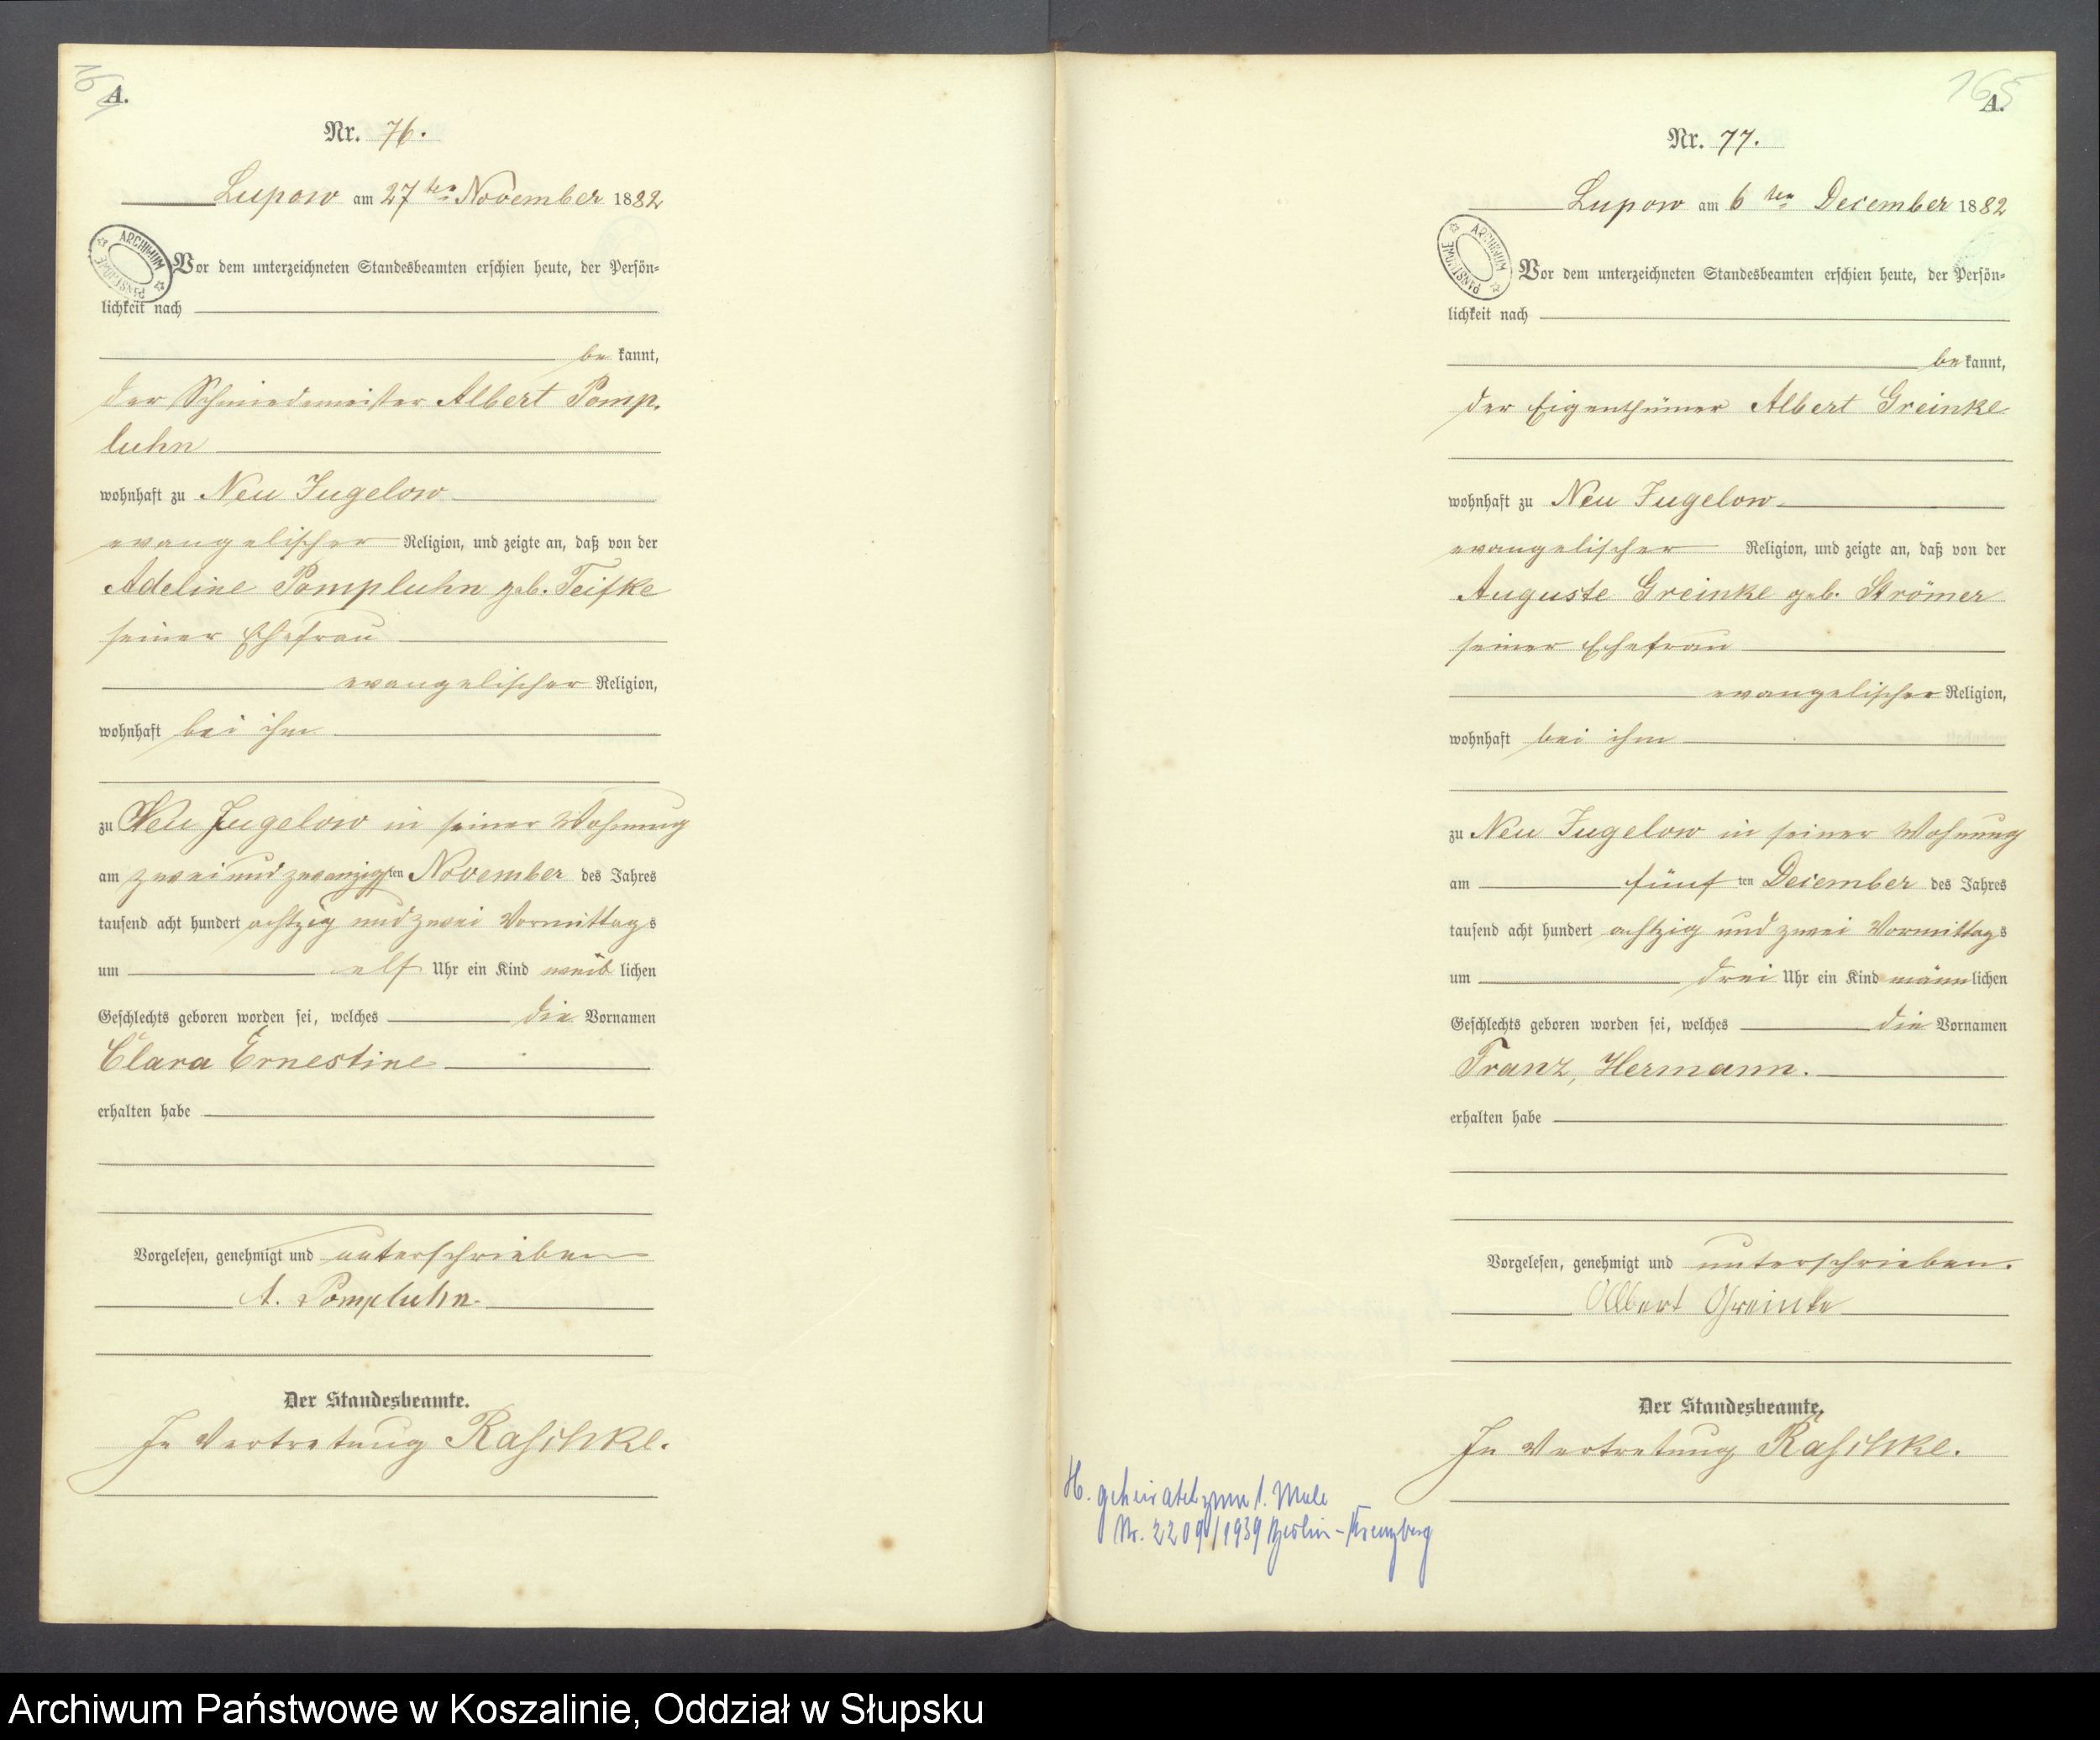 A.
Nr. 76.
Lupow am 27ten November 1882
ARCHIWUM PAŃSTWOWE
Vor dem unterzeichneten Standesbeamten erschien heute, der Persön-
lichkeit nach
be kannt,
der Schmiedemeister Albert Pomp-
luhn
wohnhaft zu Neu Jugelow
evangelischer Religion, und zeigte an, daß von der
Adeline Pompluhn geb. Teifke
seiner Ehefrau
evangelischer Religion,
wohnhaft bei ihm
zu Neu Jugelow in seiner Wohnung
am zwei und zwanzigsten November des Jahres
tausend acht hundert achtzig und zwei Vormittags
um elf Uhr ein Kind weib lichen
Geschlechts geboren worden sei, welches die Vornamen
Clara Ernestine
erhalten habe
Vorgelesen, genehmigt und unterschrieben
A. Pompluhn.
Der Standesbeamte.
In Vertretung Raschke.
165
A.
Nr. 77.
Lupow am 6ten December 1882
ARCHIWUM PAŃSTWOWE
Vor dem unterzeichneten Standesbeamten erschien heute, der Persön-
lichkeit nach
be kannt,
der Eigenthümer Albert Greinke
wohnhaft zu Neu Jugelow
evangelischer Religion, und zeigte an, daß von der
Auguste Greinke geb. Strömer
seiner Ehefrau
evangelischer Religion,
wohnhaft bei ihm
zu Neu Jugelow in seiner Wohnung
am fünf ten December des Jahres
tausend acht hundert achtzig und zwei Vormittags
um drei Uhr ein Kind männlichen
Geschlechts geboren worden sei, welches die Vornamen
Franz, Hermann.
erhalten habe
Vorgelesen, genehmigt und unterschrieben.
Albert Greinke
Der Standesbeamte.
In Vertretung Raschke.
H. geheiratet zum 1. Male
Nr. 2209/1939 Berlin-Kreuzberg
Archiwum Państwowe w Koszalinie, Oddział w Słupsku